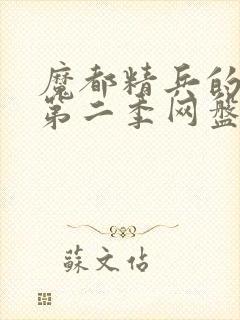 魔都精兵的
第二季网盘
蘇文佔